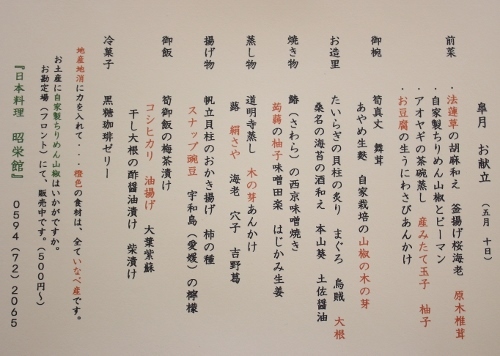 皐月 お献立 (五月 十日)
前菜 ・法蓮草の胡麻和え 釜揚げ桜海老 原木椎茸
・自家製ちりめん山椒とピーマン
・アオヤギの茶碗蒸し 産みたて玉子 柚子
・お豆腐の生うにわさびあんかけ
御椀 筍真丈 舞茸
あやめ生麩 自家栽培の山椒の木の芽
お造里 たいらぎの貝柱の炙り まぐろ 烏賊 大根
桑名の海苔の酒和え 本山葵 土佐醤油
焼き物 鰆(さわら)の西京味噌焼き
蒟蒻の柚子味噌田楽 はじかみ生姜
蒸し物 道明寺蒸し 木の芽あんかけ
蕗 絹さや 海老 穴子 吉野葛
揚げ物 帆立貝柱のおかき揚げ 柿の種
スナップ豌豆 宇和島(愛媛)の檸檬
御飯 筍御飯の梅茶漬け
コシヒカリ 油揚げ 大葉紫蘇
干し大根の酢醤油漬け 柴漬け
冷菓子 黒糖珈琲ゼリー
地産地消に力を入れて・・橙色の食材は、全ていなべ産です。
お土産に自家製ちりめん山椒はいかがですか。
お勘定場(フロント)にて、販売中です。(500円~)
『日本料理 昭栄館』 0594(72)2065